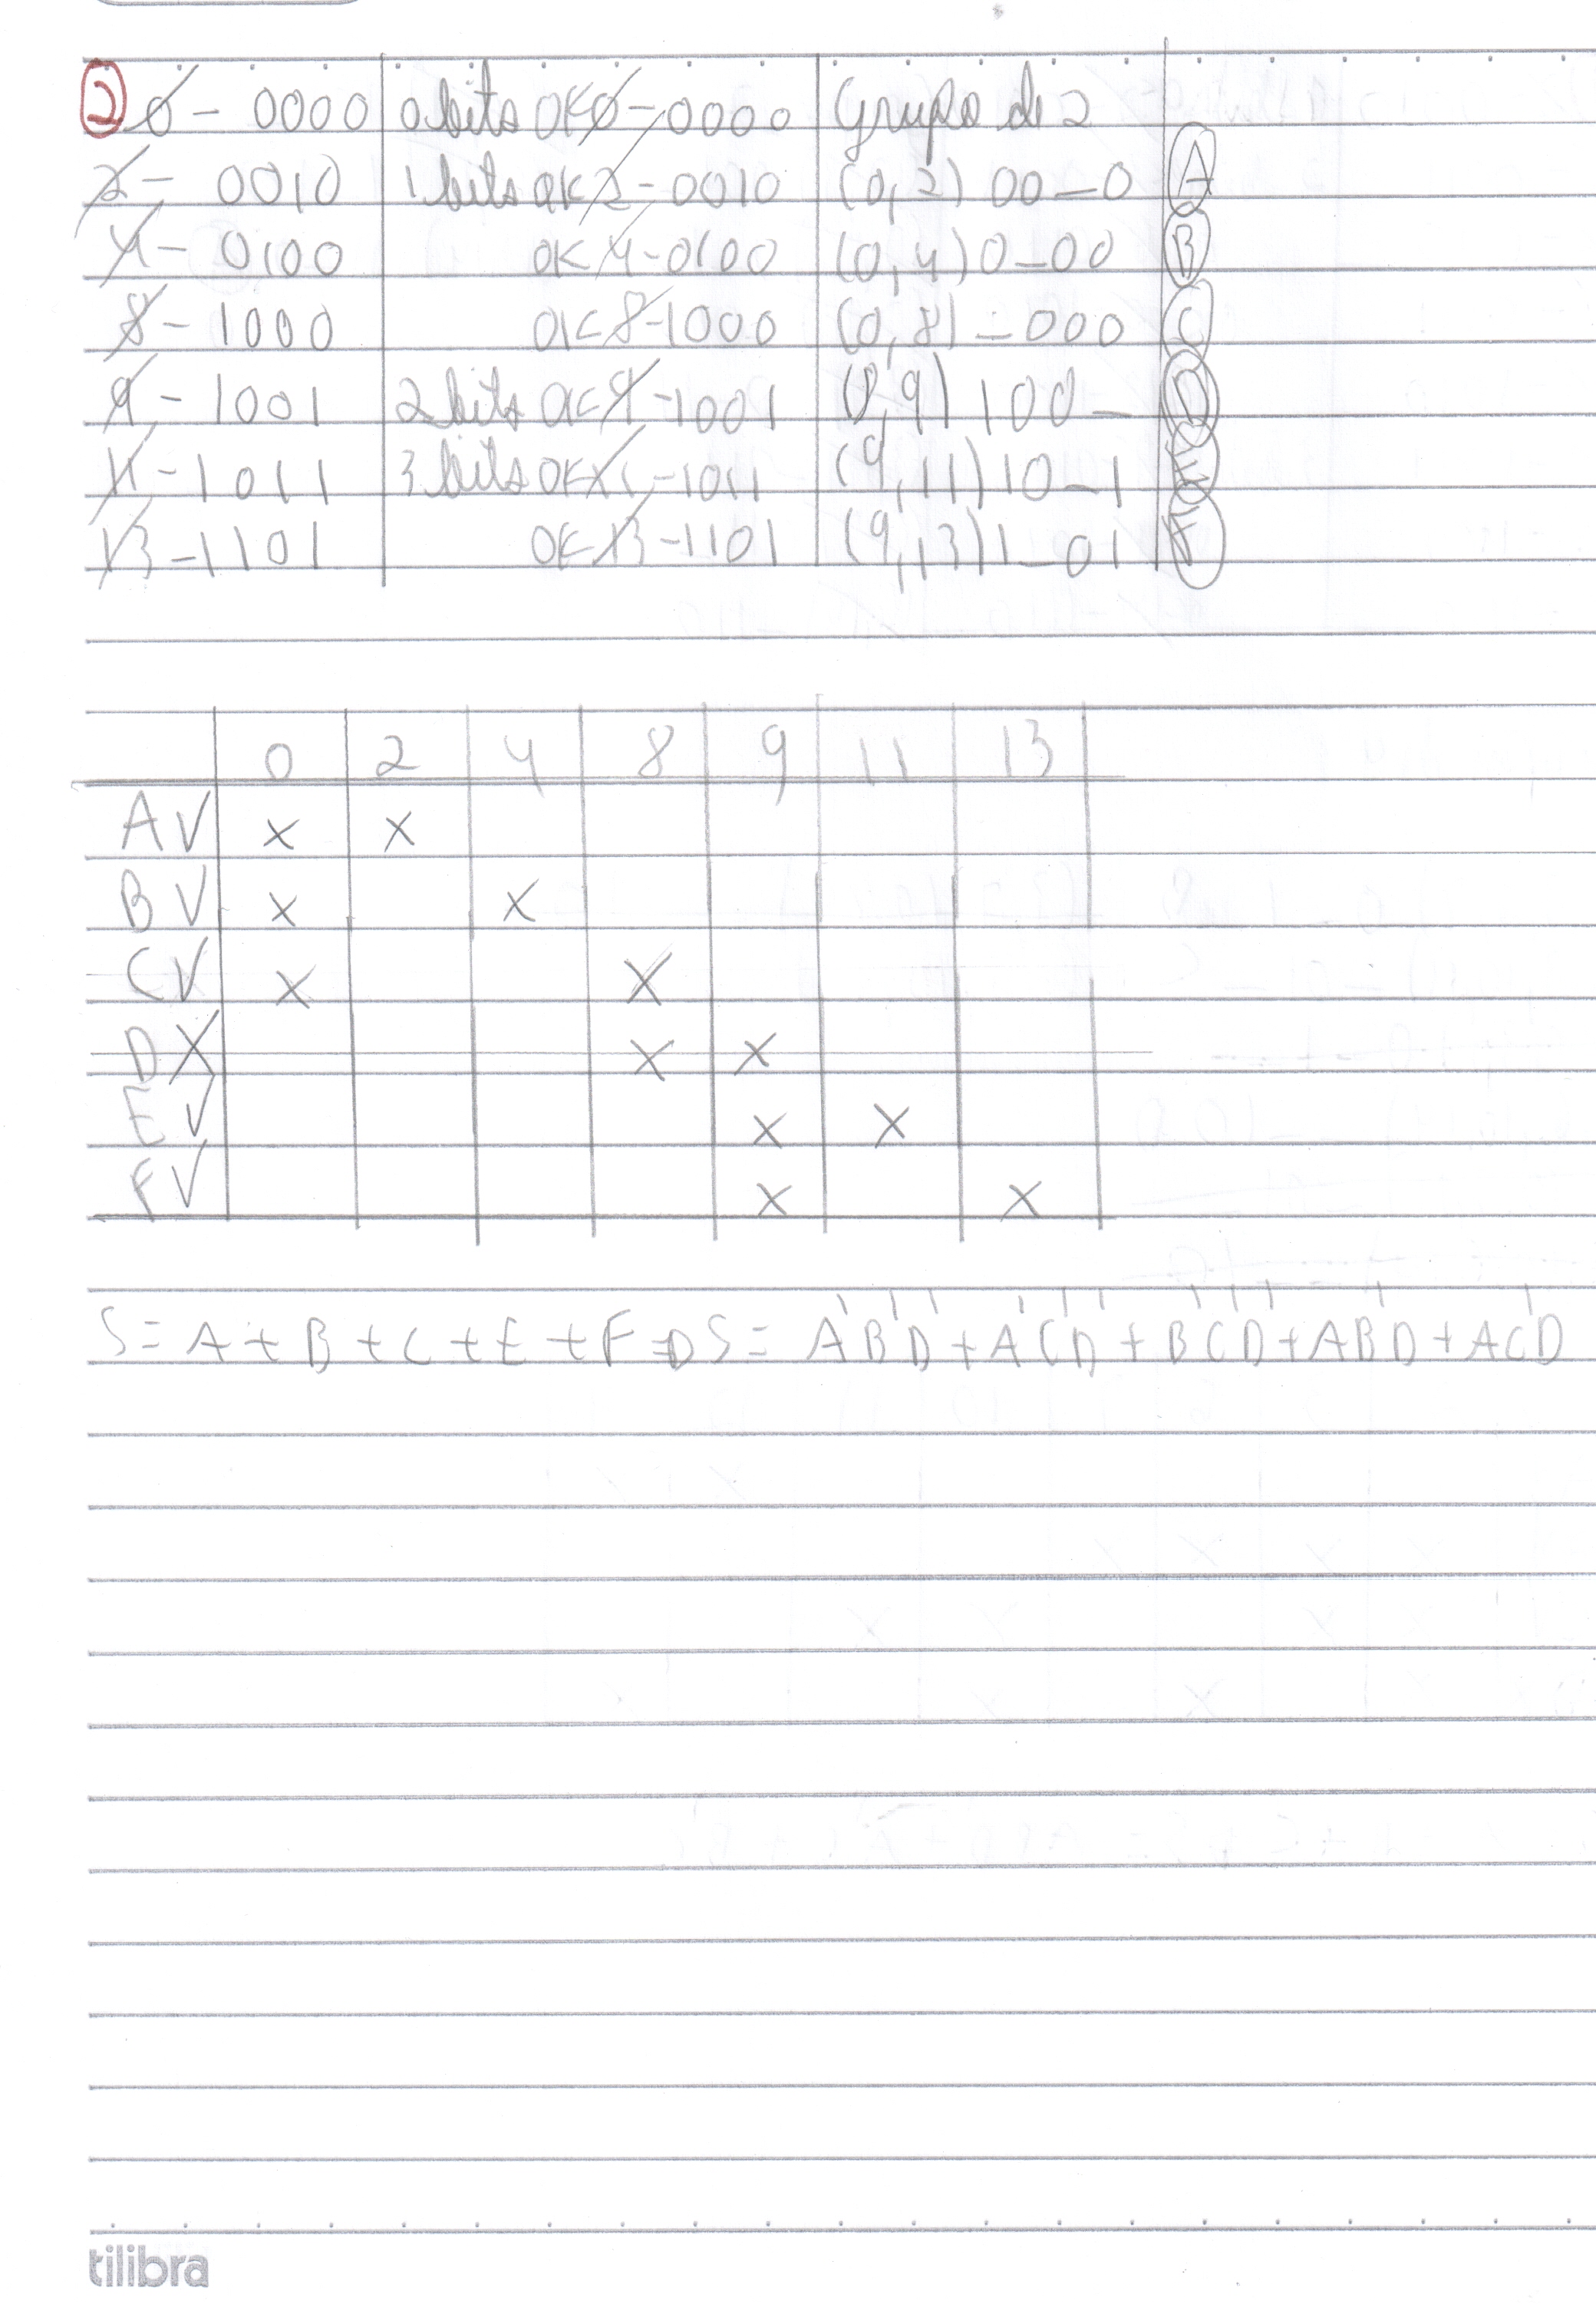 2 0 - 0000 0 bits OK 0 - 0000 Grupo de 2
2 - 0010 1 bits OK 2 - 0010 (0,2) 00_0 A
4 - 0100 OK 4 - 0100 (0,4) 0_00 B
8 - 1000 OK 8 - 1000 (0,8) _000 C
9 - 1001 2 bits OK 9 - 1001 (8,9) 100_ D
11 - 1011 3 bits OK 11 - 1011 (9,11) 10_1 E
13 - 1101 OK 13 - 1101 (9,13) 1_01 F
0 2 4 8 9 11 13
A V x x
B V x x
C V x x
D X x x
E V x x
F V x x
S = A + B + C + E + F => S = A'B'D' + A'C'D' + B'C'D' + AB'D + AC'D
tilibra